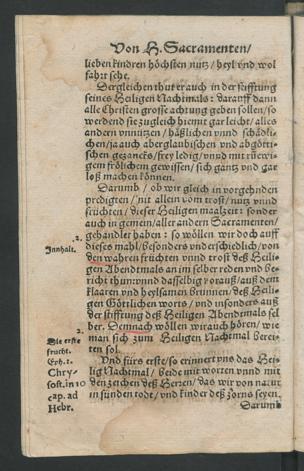 Von H. Sacramenten/
lieben kindren höchsten nutz / heyl vnd wol
fahrt sehe.
Dergleichen thut er auch in der stifftung
seines Heiligen Nachtmals: darauff dann
alle Christen grosse achtung geben sollen / so
werdend sie zugleich hiemit gar leicht / alles
andern vnnützen / häßlichen vnnd schädli-
chen / ja auch aberglaubischen vnd abgötti-
schen gezancks / frey ledig / vnnd mit rüewi-
gem frölichem gewissen / sich gantz vnd gar
loß machen können.
Darumb / ob wir gleich in vorgehnden
predigten / mit allein vom trost / nutz vnnd
früchten / dieser Heiligen maalzeit: sonder
auch in gemein / aller andern Sacramenten /
gehandlet haben: so wöllen wir doch auff
dieses mahl / besonders vnderschiedlich / von
den wahren früchten vnnd trost deß Heili-
gen Abendtmals an im selber reden vnd be-
richt thun: vnnd dasselbig vorauß / auß dem
klaaren vnd heylsamen brunnen / deß Heili-
gen Göttlichen worts / vnd insonders auß
der stifftung deß Heiligen Abendtmals sel
ber. Demnach wöllen wir auch hören / wie
man sich zum Heiligen Nachtmal berei-
ten sol.
Vnd fürs erste / so erinnert vns das Hei-
lig Nachtmal / beide mit worten vnnd mit
den zeichen deß Herren / das wir von natur
in sünden todt / vnd kinder deß zorns seyen.
Darumb
.2.
Innhalt.
2.
Die erste
frucht.
Eph. 2.
Chry-
sost. in 10
cap. ad
Hebr.